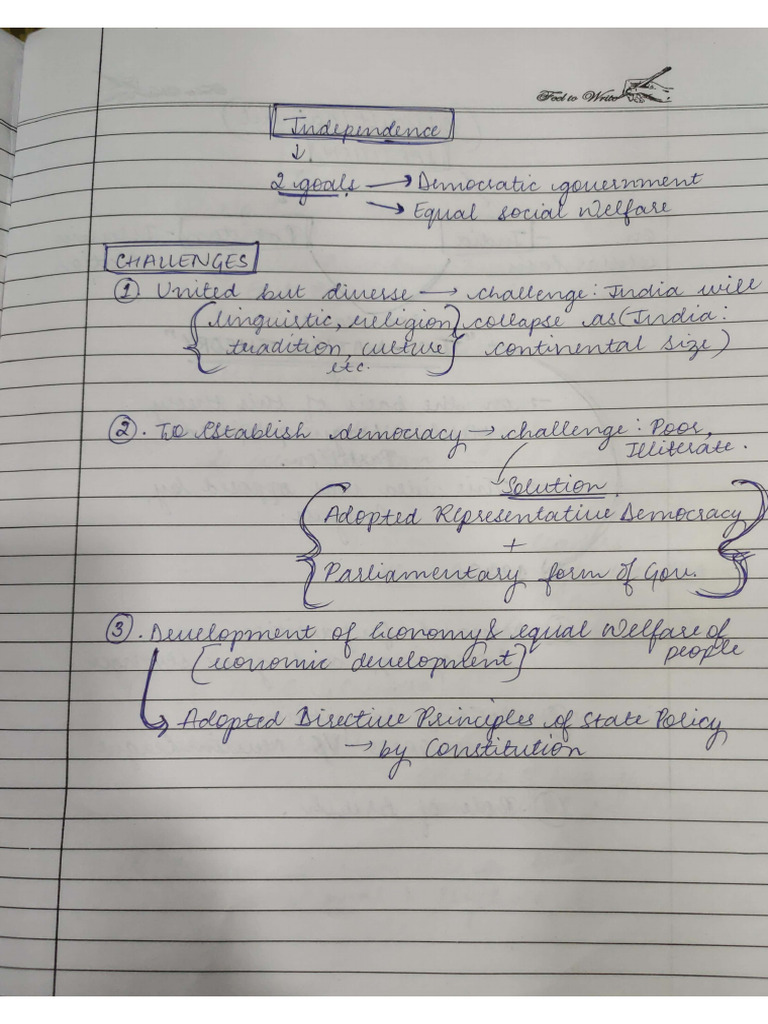 Feel to Write
Independence
↓
2 goals → Democratic government
→ Equal social Welfare
CHALLENGES
① United but diverse → challenge: India will
{linguistic, religion, collapse as (India:
tradition, culture} continental size)
etc.
②. To establish democracy → challenge: Poor,
Illiterate.
Solution
{Adopted Representative Democracy
+
Parliamentary form of Gov.}
③. Development of Economy & equal Welfare of
[economic development] people
→ Adopted Directive Principles of State Policy
→ by Constitution